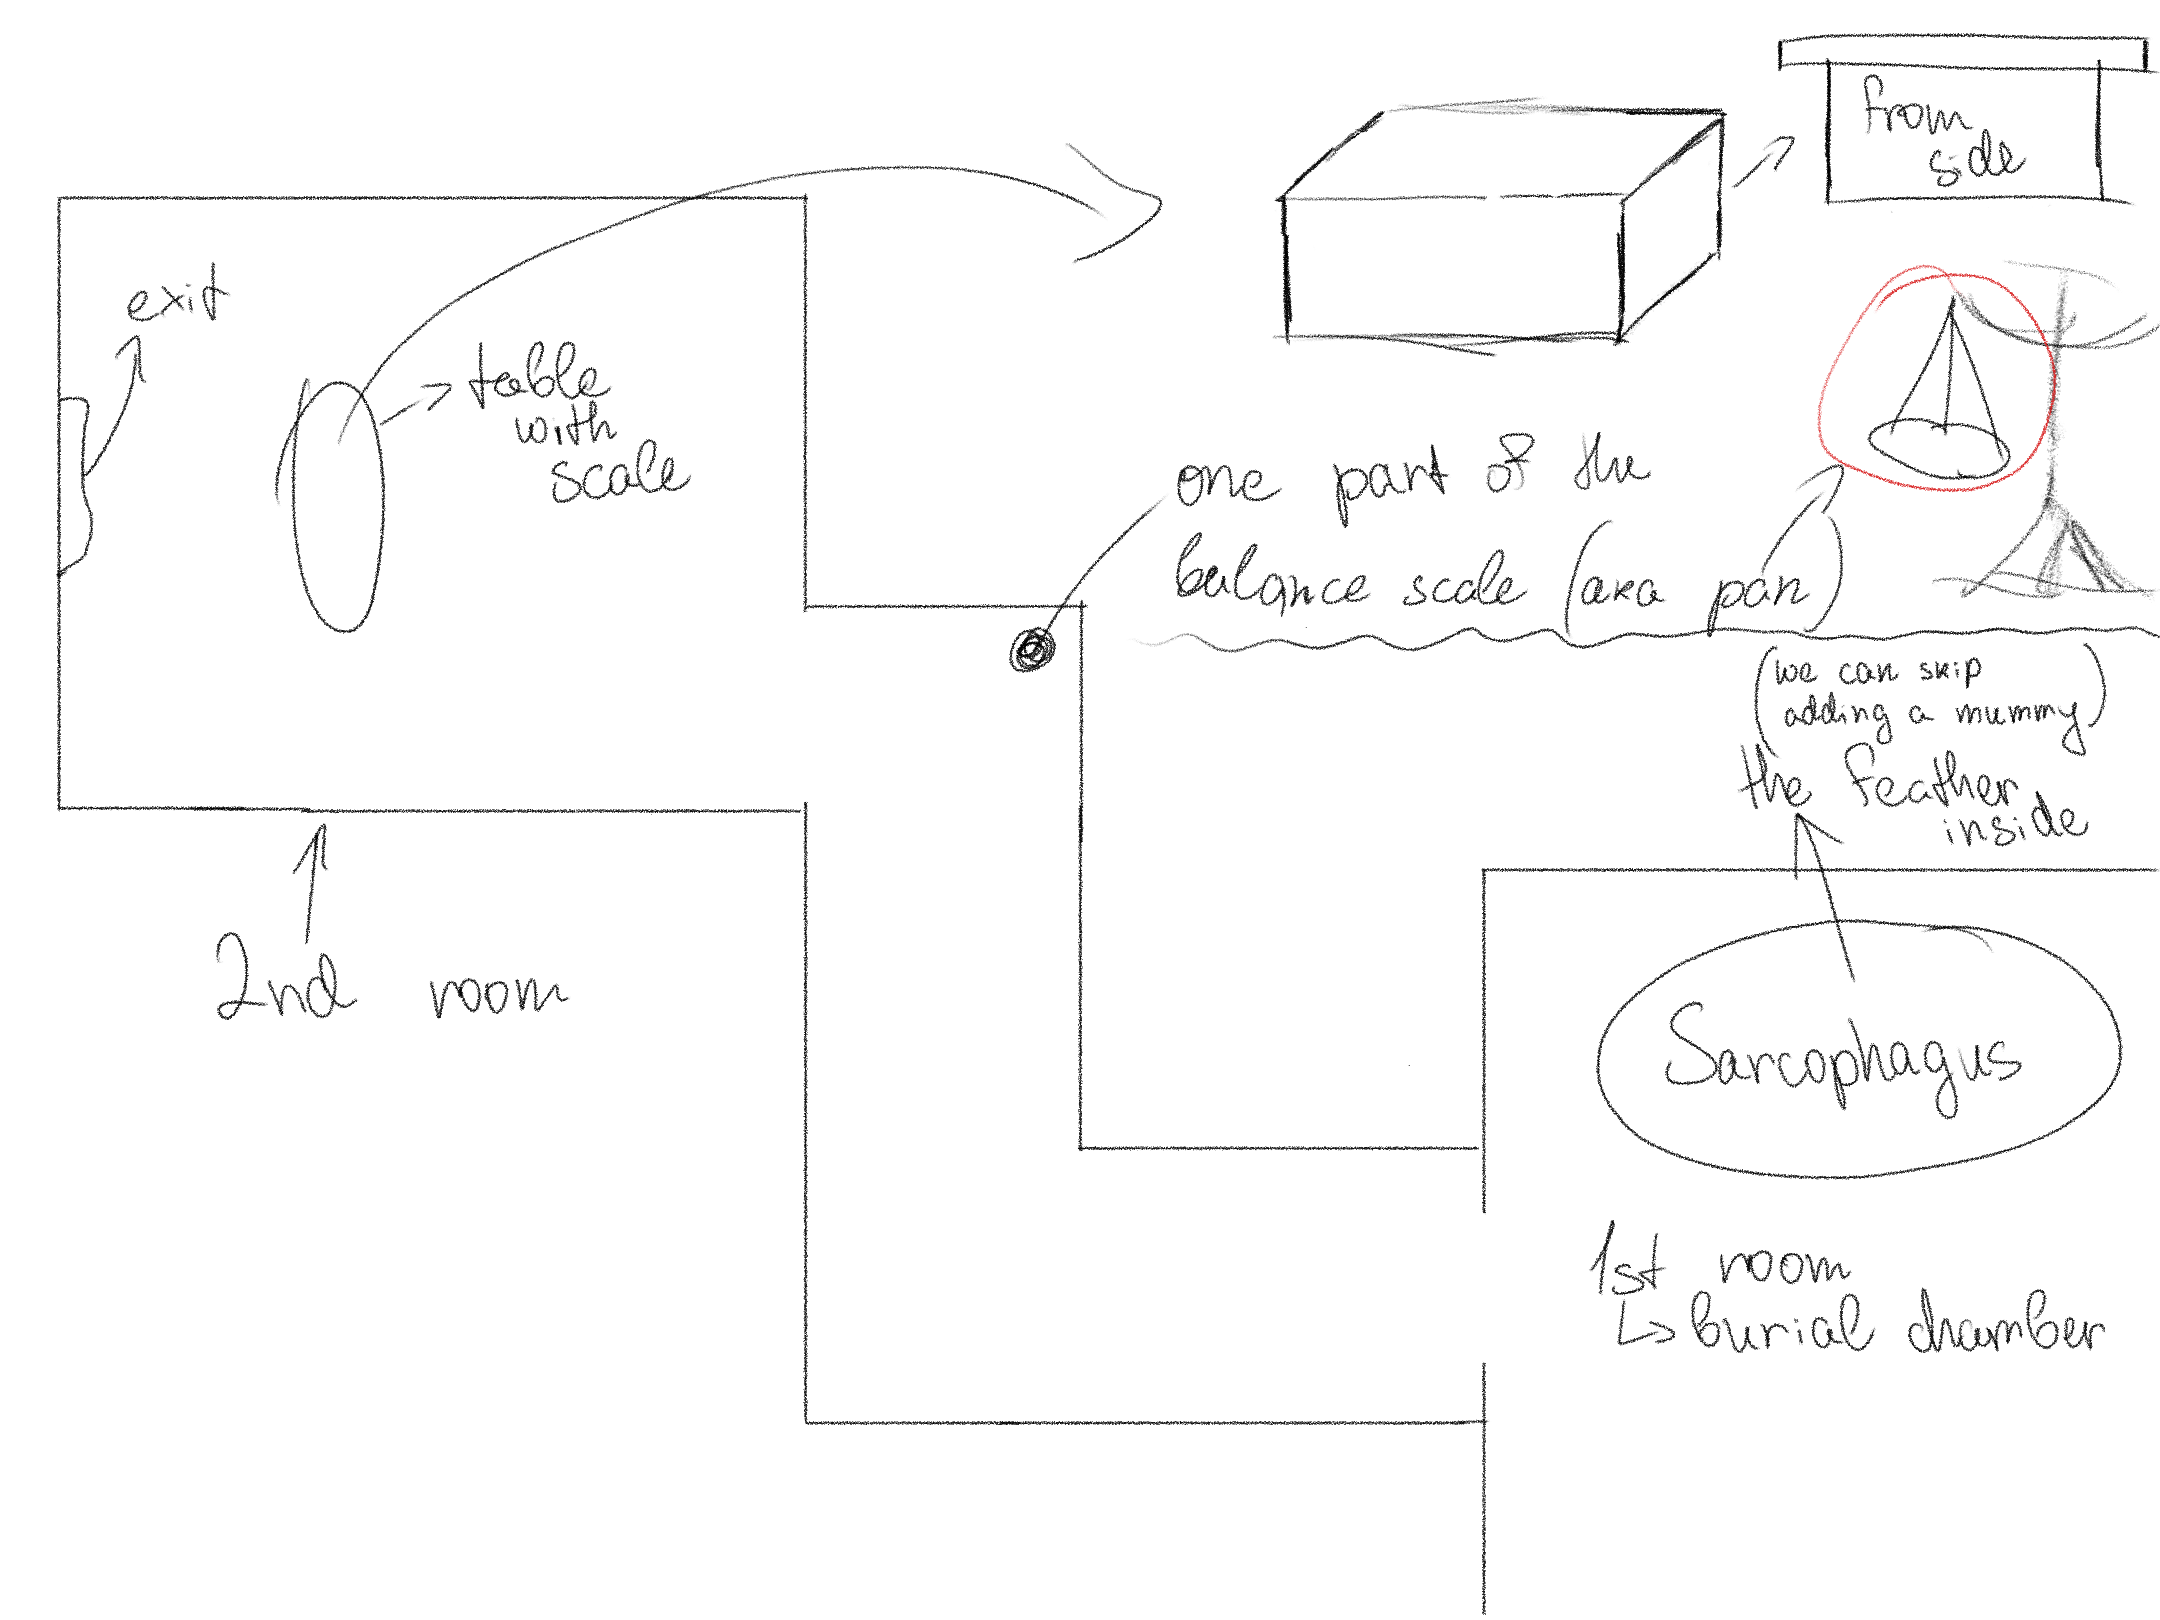 from
side
exit
table
with
scale
one part of the
balance scale (aka pan)
(we can skip
adding a mummy)
the feather
inside
2nd room
Sarcophagus
1st room
burial chamber